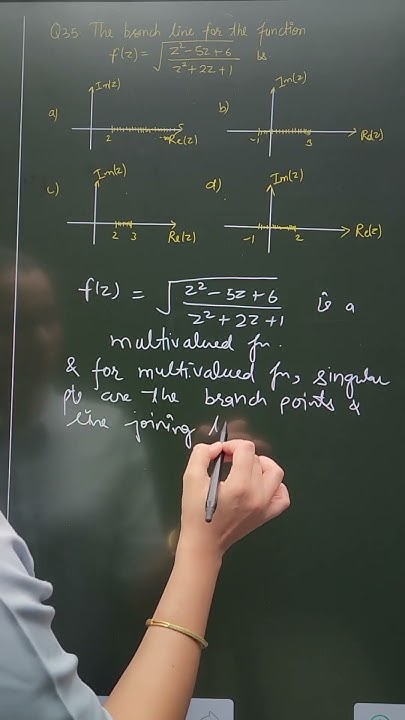 Q35. The branch line for the function
f(z) = √(z² - 5z + 6 / z² + 2z + 1) is
a) Im(z) 2 Re(z)
b) Im(z) -1 3 Re(z)
c) Im(z) 2 3 Re(z)
d) Im(z) -1 2 Re(z)
f(z) = √(z² - 5z + 6 / z² + 2z + 1) is a
multivalued fn.
& for multivalued fn, singular
pts are the branch points &
line joining